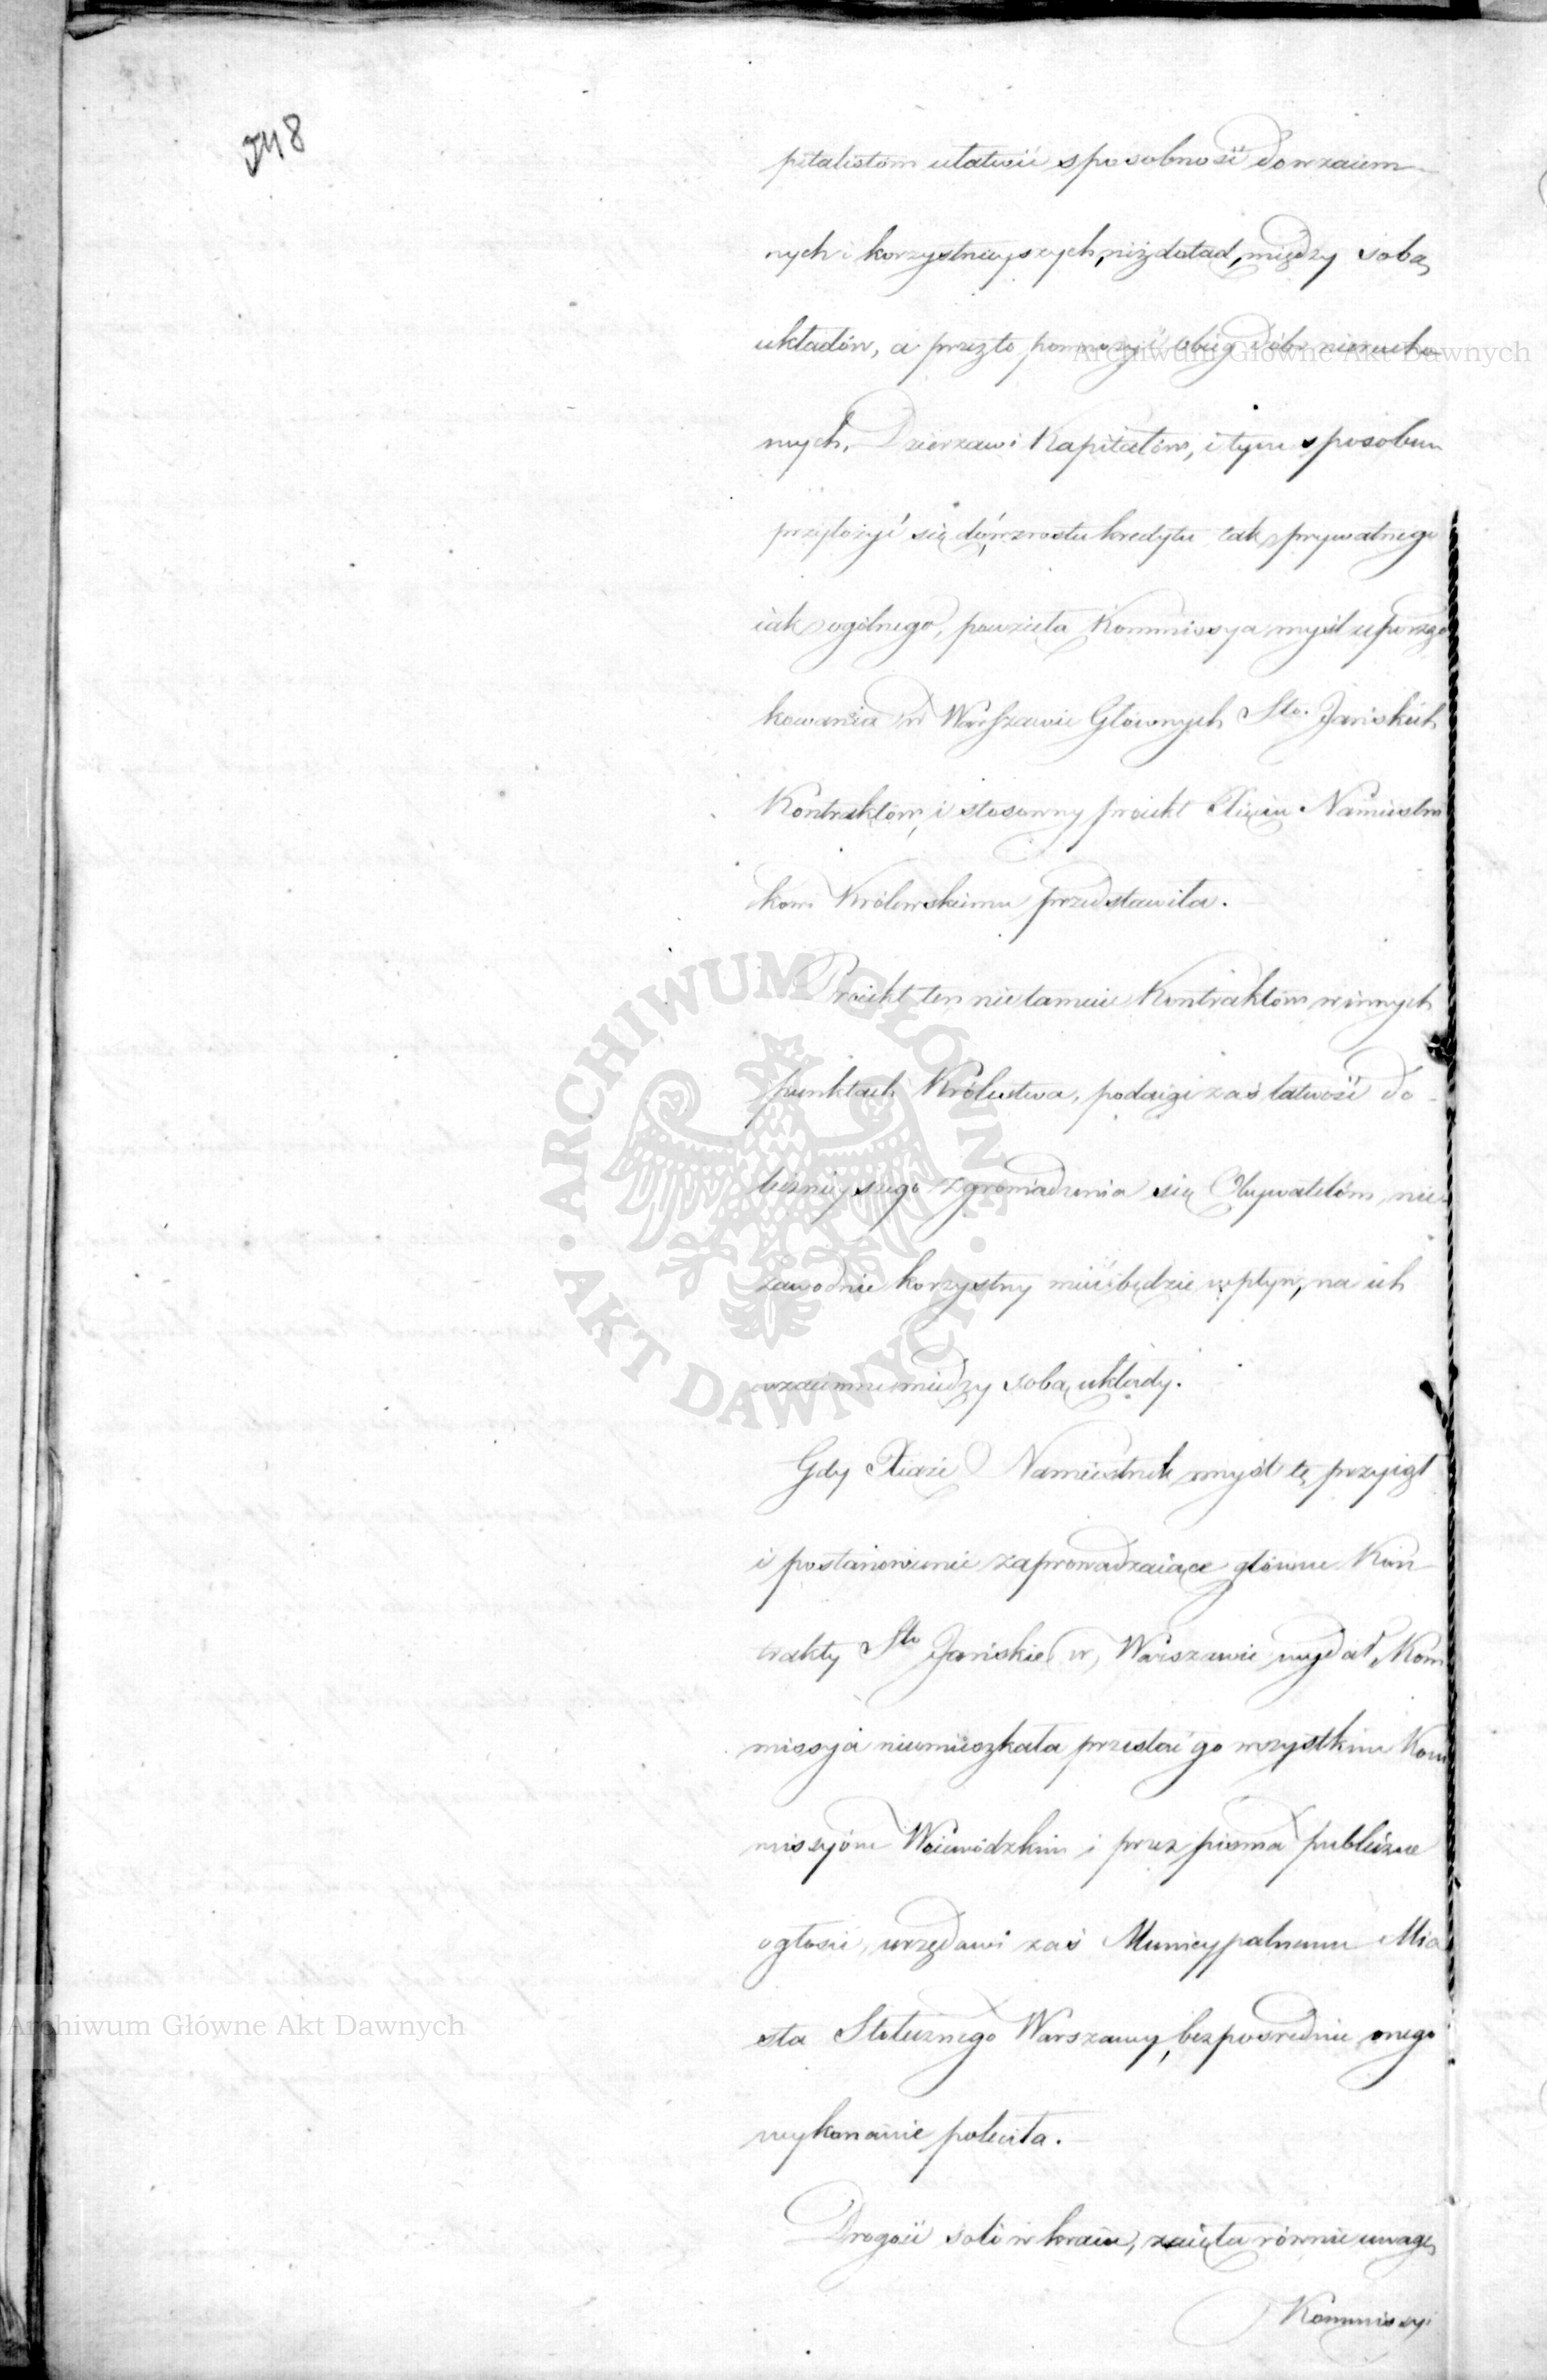 548
pitalistom ułatwić sposobność do wzaiem-
nych i korzystnieyszych, niż dotąd, między sobą
układów, a przez to pomnożyć obieg dóbr nierucho-
mych, Dzierzaw i Kapitałów, i tym sposobem
przyłożyć się do wzrostu kredytu tak prywatnego
iak ogólnego, powzięła Kommissya myśl uporząd
kowania w Warszawie Głównych Sto. Jańskich
Kontraktów, i stosowny proiekt Xięciu Namiestni
kowi Królewskiemu przedstawiła.
Proiekt ten nie tamuie Kontraktów w innych
punktach Królestwa, podaiąc zaś łatwość do
licznieyszego zgromadzenia się Obywatelów, nie-
zawodnie korzystny mieć będzie wpływ, na ich
wzaiemne między sobą układy.
Gdy Xiąże Namiestnik myśl tę przyiął
i postanowienie zaprowadzaiące główne Kon-
trakty Sto Jańskie w Warszawie wydał, Kom
missya nieomieszkała przesłać go wszystkim Kom
missyom Woiewódzkim i przez pisma publiczne
ogłosić, urzędowi zaś Municypalnemu Mia
sta Stołecznego Warszawy, bezpośrednie onego
wykonanie poleciła.
Drogość soli w kraiu, zaięła równie uwagę
Kommissyi
Archiwum Główne Akt Dawnych
ARCHIWUM GŁÓWNE · AKT DAWNYCH ·
Archiwum Główne Akt Dawnych